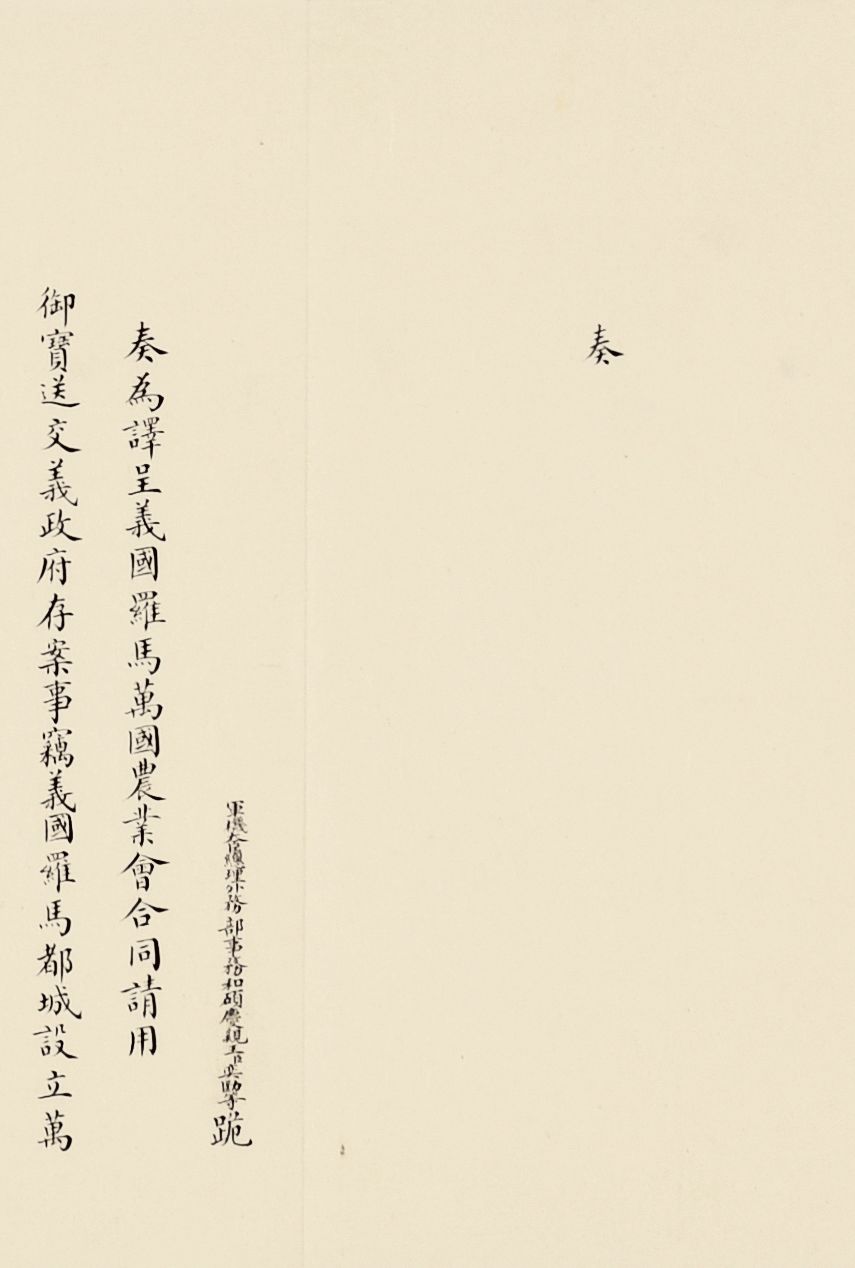 奏
軍機大臣總理外務部事務和碩慶親王臣奕劻等跪
奏為譯呈義國羅馬萬國農業會合同請用
御寶送交義政府存案事竊義國羅馬都城設立萬